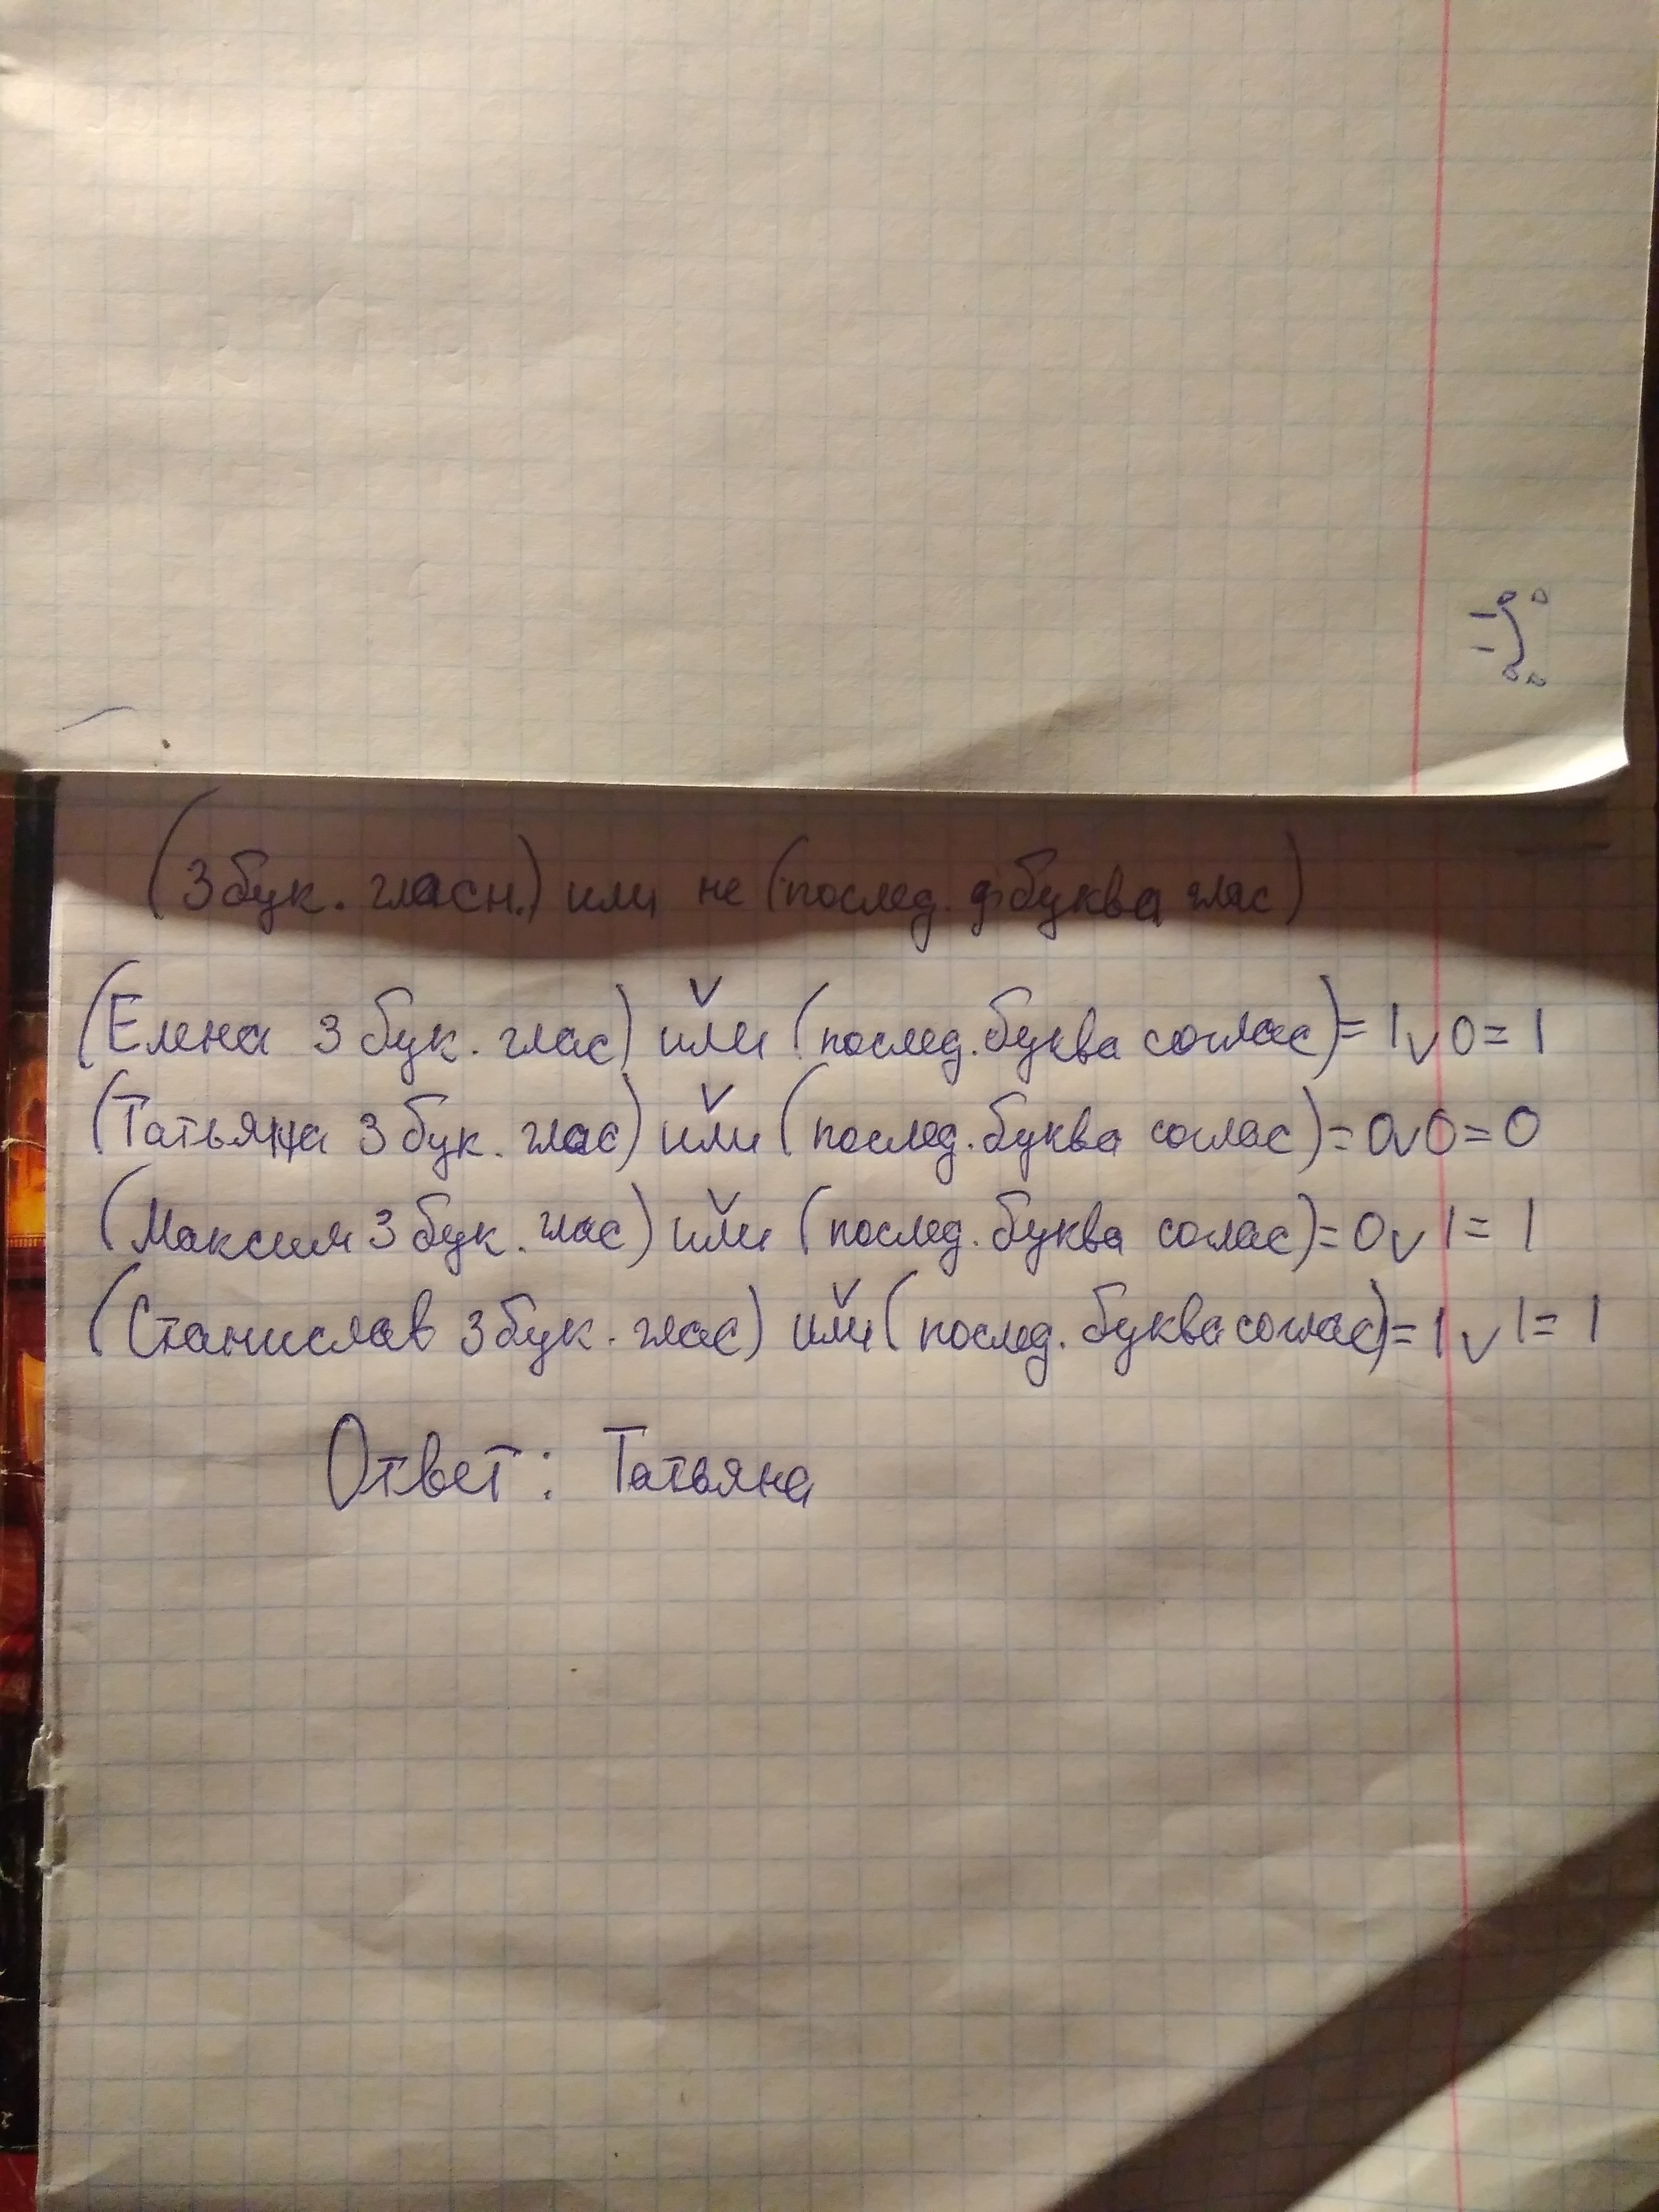 (3 бук. гласн.) или не (послед. буква глас)
(Елена 3 бук. глас) или (послед. буква соглас) = 1 v 0 = 1
(Татьяна 3 бук. глас) или (послед. буква соглас) = 0 v 0 = 0
(Максим 3 бук. глас) или (послед. буква соглас) = 0 v 1 = 1
(Станислав 3 бук. глас) или (послед. буква соглас) = 1 v 1 = 1
Ответ: Татьяна